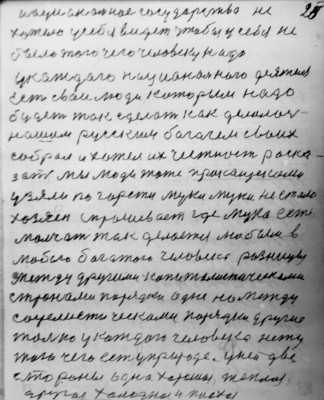 национальное государство не 25
хотело у себя видет чтобы у себя не
было того чего человеку надо
у каждаго национального деятеля
есть свои люди которым надо
будет так сделат как делалос
нашим русским багачем своих
собрал и хотел их честност расказа
зат мы люди тоже
узяли по горсти муки муки не стало
хозяен спрашивает где мука есть
молчат так делается любым в
любого богатого человека разницы
между другими капиталистическими
странами порядки одне но между
социлистическими порядки другие
только у каждого человека нету
того чего ест у природе. у ней две
стороны одна хорошая, теплая,
другая холодная и плоха